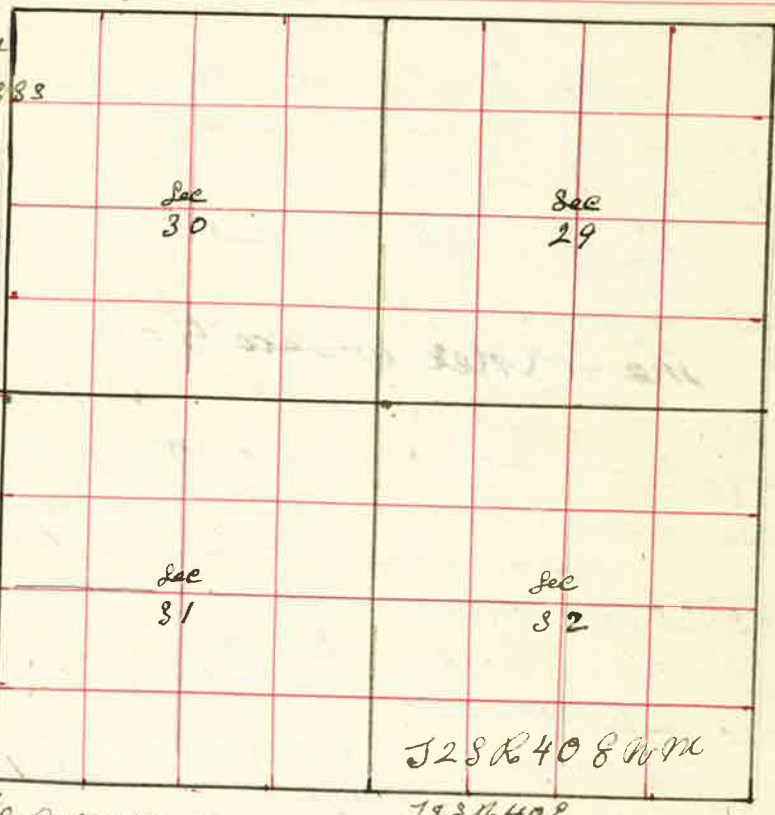 Sec
30
Sec
29
Sec
31
Sec
32
T2S R40 E W M
T3S R40E